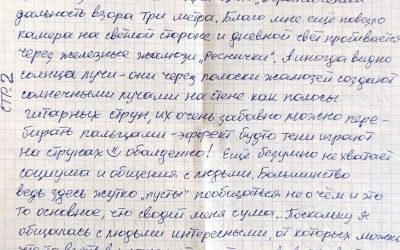 дальность взора три метра. Благо мне ещё повезло
камера на светлой стороне и дневной свет пробивается
через железные жалюзи „Реснички“. А иногда видно
солнца лучи - они через полоски жалюзей создают
солнечными лучами на стене как полосы
гитарных струн, их очень забавно можно пере-
бирать пальцами - эффект будто тени играют
на струнах обалденно! Ещё безумно не хватает
социума и общения с людьми, Большинство
ведь здесь жутко „пусты“ пообщаться не о чём и это
то основное, что сводит меня с ума.. Поскольку я
общалась с людьми интересными, от которых можно
СТР. 2